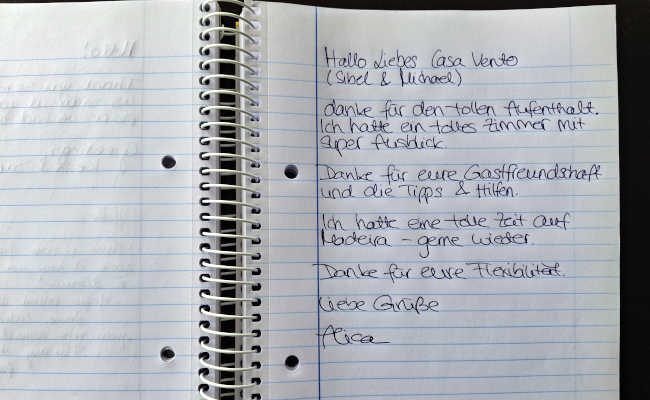 Hallo Liebes Casa Vento
(Sibel & Michael)
danke für den tollen Aufenthalt.
Ich hatte ein tolles Zimmer mit
super Ausblick
Danke für eure Gastfreundshaft
und die Tipps & Hilfen.
Ich hatte eine tolle Zeit auf
Madeira - gerne wieder.
Danke für eure Flexibilität.
Liebe Grüße
Alica